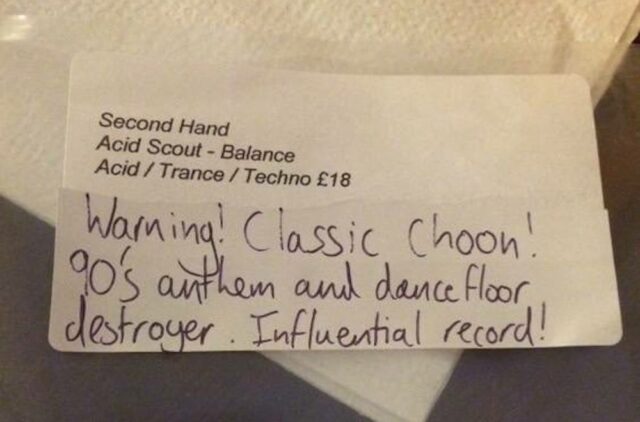 Second Hand
Acid Scout - Balance
Acid / Trance / Techno £18
Warning! Classic Choon!
90's anthem and dance floor
destroyer. Influential record!